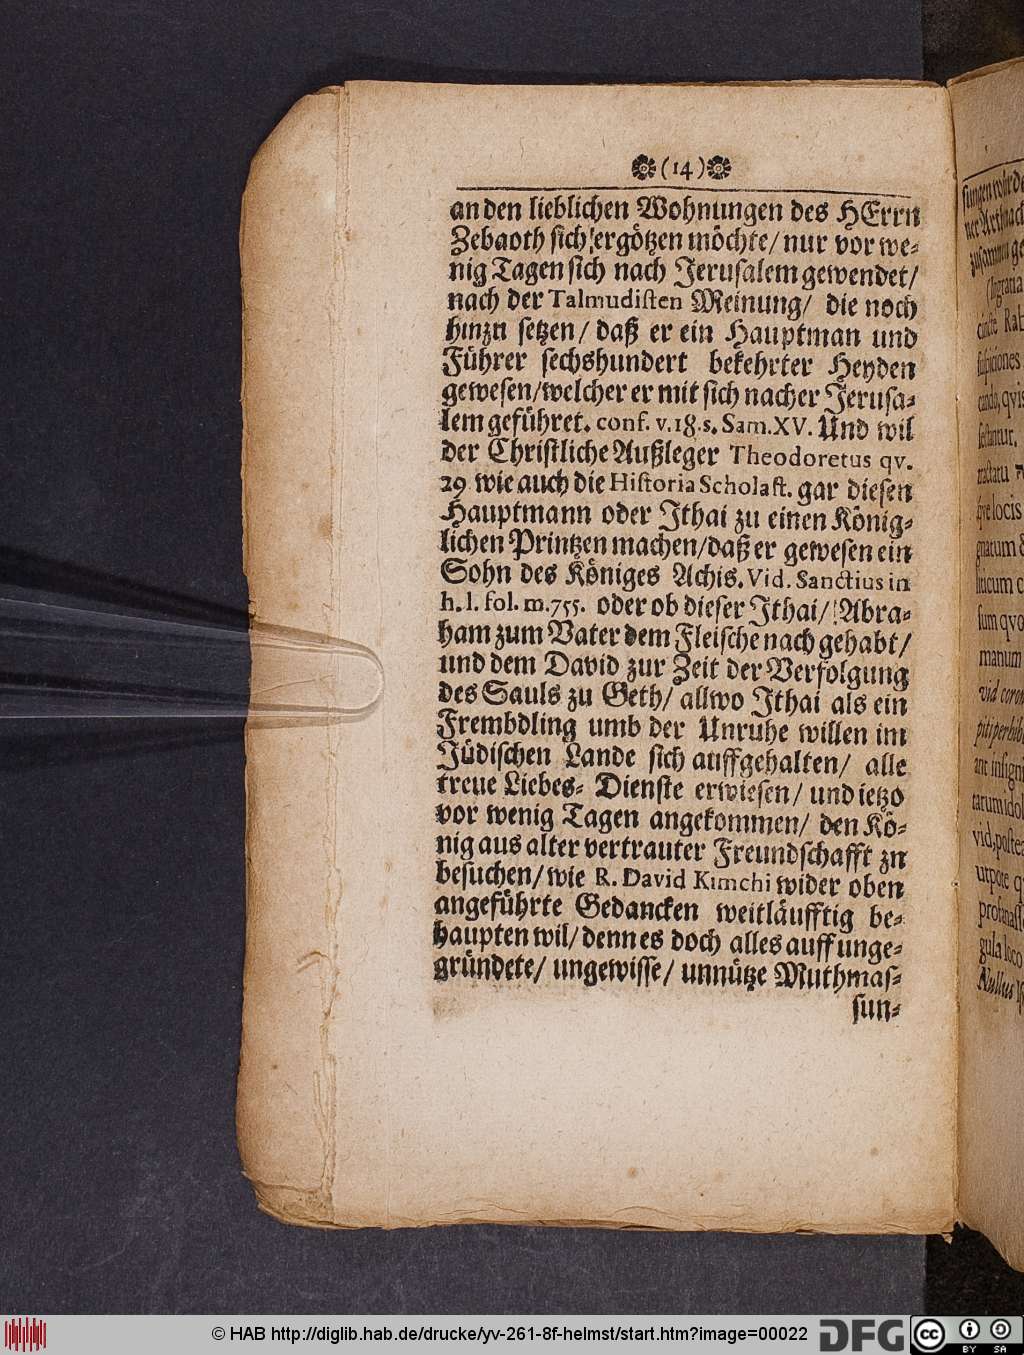 (14)
an den lieblichen Wohnungen des HErrn
Zebaoth sich ergötzen möchte/ nur vor we-
nig Tagen sich nach Jerusalem gewendet/
nach der Talmudisten Meinung/ die noch
hinzu setzen/ daß er ein Hauptman und
Führer sechshundert bekehrter Heyden
gewesen/welcher er mit sich nacher Jerusa-
lem geführet. conf. v.18.s. Sam.XV. Und wil
der Christliche Außleger Theodoretus qv.
29 wie auch die Historia Scholast. gar diesen
Hauptmann oder Ithai zu einen König-
lichen Printzen machen/daß er gewesen ein
Sohn des Königes Achis. Vid. Sanctius in
h. l. fol. m.755. oder ob dieser Ithai/ Abra-
ham zum Vater dem Fleische nach gehabt/
und dem David zur Zeit der Verfolgung
des Sauls zu Geth/ allwo Ithai als ein
Frembdling umb der Unruhe willen im
Jüdischen Lande sich auffgehalten/ alle
treue Liebes- Dienste erwiesen/ und ietzo
vor wenig Tagen angekommen/ den Kö-
nig aus alter vertrauter Freundschafft zu
besuchen/ wie R. David Kimchi wider oben
angeführte Gedancken weitläufftig be-
haupten wil/ denn es doch alles auff unge-
gründete/ ungewisse/ unnütze Muthmas-
sun-
© HAB http://diglib.hab.de/drucke/yv-261-8f-helmst/start.htm?image=00022
DFG
CC BY SA